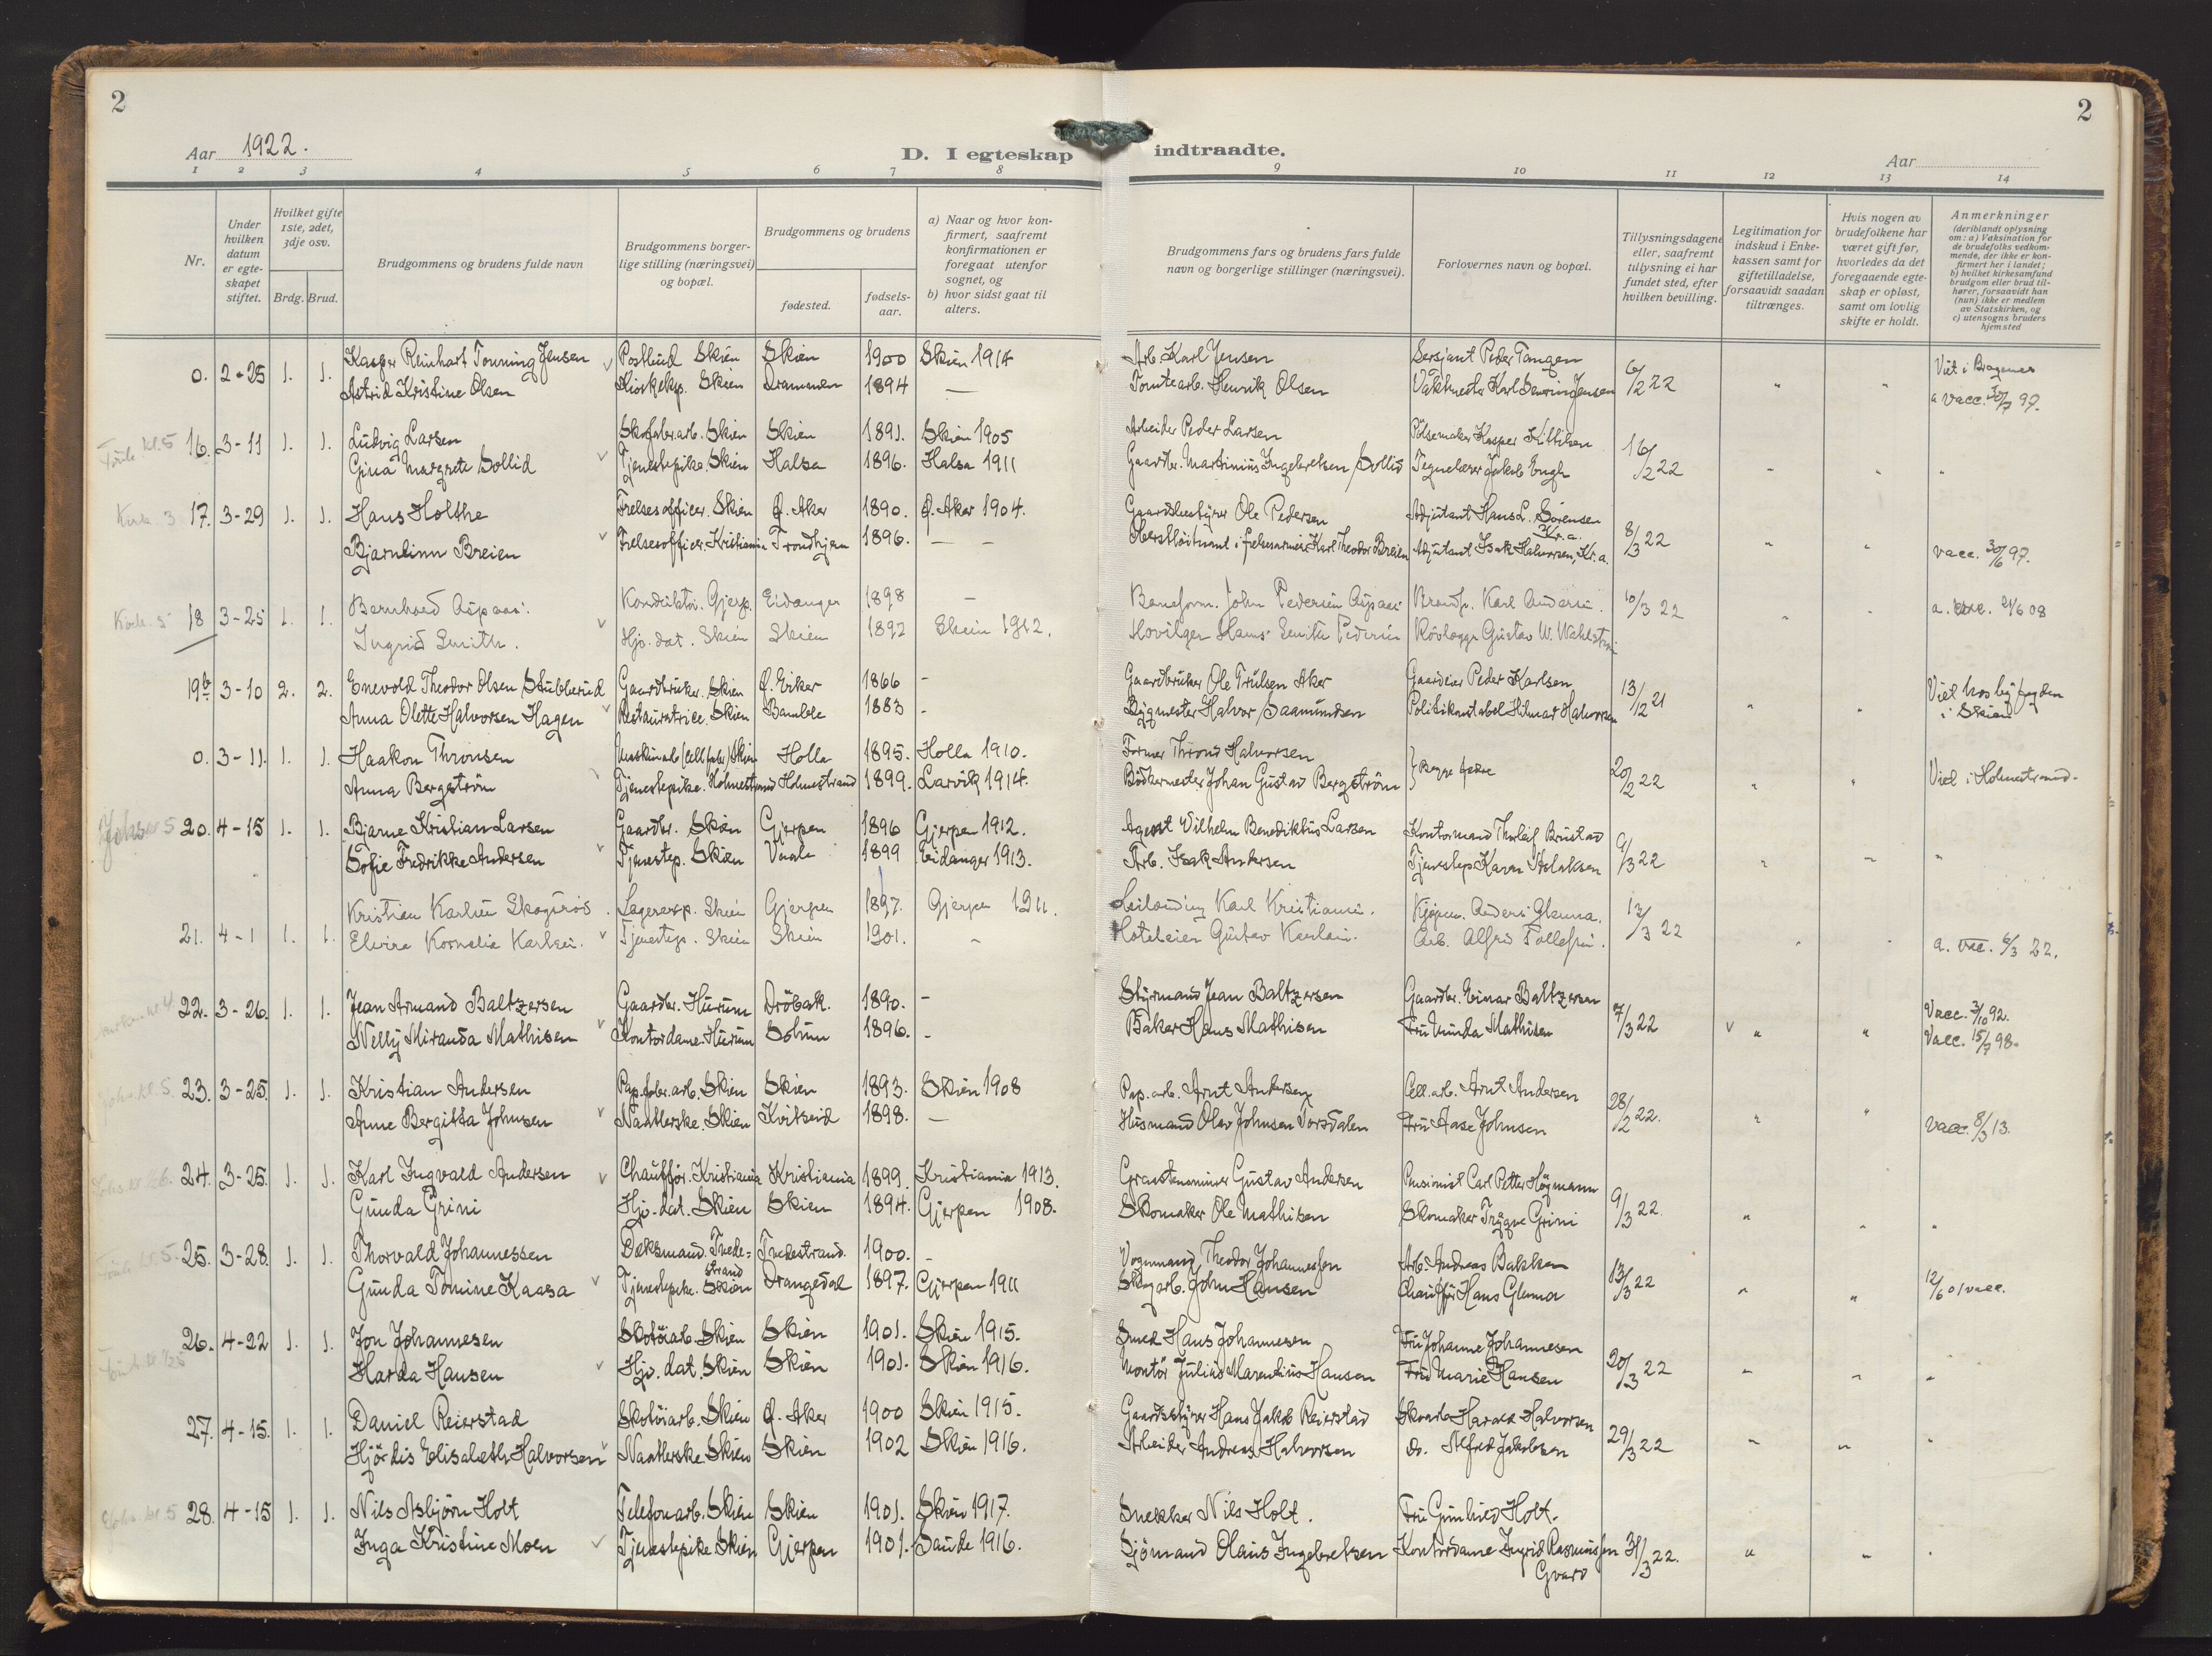 2
2
Aar 1922.
D. I egteskap indtraadte.
Aar
1 2 3 4 5 6 7 8 9 10 11 12 13 14
Nr.
Under hvilken datum er egteskapet stiftet.
Hvilket gifte 1ste, 2det, 3dje osv.
Brdg. Brud.
Brudgommens og brudens fulde navn
Brudgommens borgerlige stilling (næringsvei) og bopæl.
Brudgommens og brudens
fødested.
fødselsaar.
a) Naar og hvor konfirmert, saafremt konfirmationen er foregaat utenfor sognet, og
b) hvor sidst gaat til alters.
Brudgommens fars og brudens fars fulde navn og borgerlige stillinger (næringsvei).
Forlovernes navn og bopæl.
Tillysningsdagene eller, saafremt tillysning ei har fundet sted, efter hvilken bevilling.
Legitimation for indskud i Enkekassen samt for giftetilladelse, forsaavidt saadan tiltrænges.
Hvis nogen av brudefolkene har været gift før, hvorledes da det foregaaende egteskap er opløst, samt om lovlig skifte er holdt.
Anmerkninger (deriblandt oplysning om: a) Vaksination for de brudefolks vedkommende, der ikke er konfirmert her i landet; b) hvilket kirkesamfund brudgom eller brud tilhører, forsaavidt han (hun) ikke er medlem av Statskirken, og c) utensogns bruders hjemsted
0. 2-25 1. 1. Kasper Reinhart Tonning Jensen Postbud Skien Skien 1900 Skien 1914 Arb. Karl Jensen Sersjant Peder Tangen 6/2 22 " " Viet i Bragenes
Astrid Kristine Olsen Kioskeksp. Skien Drammen 1894 — Tomtearb. Henrik Olsen Vaktmester Karl Jensen a vacc. 30/7 97.
kl. 5 16. 3-11 1. 1. Ludvig Larsen Skofabr.arb. Skien Skien 1891. Skien 1905 Arbeider Peder Larsen Pölsemaker Kasper Kittilsen 16/2 22 " " "
Gina Margrete Sollid Tjenestepike. Skien Halsa 1896. Halsa 1911 Gaardbr. Martinius Ingebretsen Sollid Jakob Engh
Kirk. 3 17. 3-29 1. 1. Hans Holthe Frelsesofficer. Skien Ø. Aker 1890. Ø. Aker 1904. Gaardsbestyrer Ole Pedersen Adjutant Hans L. Sörensen Kr.a. 8/3 22 " "
Bjarnlinn Breien Frelsesofficer. Kristiania Trondhjem 1896. — — Oberstlöitnant i frelsesarmeen Karl Theodor Breien Adjutant Isak Halvorsen, Kr.a. vacc. 30/6 97.
Kirk. 5 18 3-25 1. 1. Bernhard Aspaas. Konduktör. Gjerp. Eidanger 1898 — Baneform. John Pedersen Aspaas Karl Andersen. 10/3 22 " " a. vacc. 21/6 08
Ingrid Smith. Hjv. dat. Skien Skien 1892 Skien 1912. Hans Smith Pedersen Gustav W.
19b 3-10 2. 2. Enevold Theodor Olsen Stubberud Gaardbruker. Skien Ø. Eiker 1866 - Gaardbruker Ole Trulsen Aker Gaardeier Peder Karlsen 13/12 21 " " Viet hos byfogden i Skien
Anna Olette Halvorsen Hagen Restauratrice. Skien Bamble 1883 - Bygmester Halvor Saamundsen Politikonstabel Hilmar Halvorsen
0. 3-11. 1. 1. Haakon Thronsen Maskinarb. (Cell.fabr.) Skien Holla 1895. Holla 1910. Former Thrond Halvorsen } Begge fædre 20/2 22 " " Viet i Holmestrand.
Anna Bergström Tjenestepike. Holmestrand Holmestrand 1899. Larvik 1914. Bödkermester Johan Gustav Bergström
Johs. 5 20. 4-15 1. 1. Bjarne Kristian Larsen Gaardbr. Skien Gjerpen 1896 Gjerpen 1912. Agent Vilhelm Benediktus Larsen Kontormand Thorleif Brustad 9/3 22 " " "
Sofie Fredrikke Andersen Tjenestep. Skien Vaale 1899 Eidanger 1913. Arb. Isak Andersen Tjenestep Karen Aslaksen
21. 4-1 1. 1. Kristian Karlsen Skogsrød. Lagereksp. Skien Gjerpen 1897. Gjerpen 1911. Karl Kristiansen. Anders Glenna. 13/3 22 " " a. vac. 6/3 22.
Elvira Kornelia Karlsen. Tjenestep. Skien Skien 1901. " Hoteleier Gustav Karlsen. Arb. Alfred Tollefsen.
22. 3-26. 1. 1. Jean Armand Baltzersen Gaardbr. Hurum Dröbak. 1890. - Styrmand Jean Baltzersen Gaardbr. Einar Baltzersen 7/3 22 " " Vacc. 3/10 92.
Nelly Miranda Mathisen Kontordame. Hurum Solum 1896. - Baker Hans Mathisen Fru Munda Mathisen Vacc. 15/7 98.
kl. 5. 23. 3-25. 1. 1. Kristian Andersen Pap.fabr.arb. Skien Skien 1893. Skien 1908 Pap.arb. Arnt Andersen Cell.arb. Arnt Andersen 28/2 22. " "
Anne Bergitta Johnsen Naatlerske. Skien Kvitseid 1898. — Husmand Olav Johnsen Vorsdalen Fru Aase Johnsen vacc. 8/3 13.
24. 3-25. 1. 1. Karl Ingvald Andersen Chauffør. Kristiania Kristiania 1899. Kristiania 1913. Gustav Andersen Pensionist Carl Petter Högmann 9/3 22. " " "
Gunda Grini Hjv.-dat. Skien Skien 1894. Gjerpen 1908. Skomaker Ole Mathisen Skomaker Trygve Grini
kl. 5. 25. 3-28. 1. 1. Thorvald Johannessen Dæksmand. Tvedestrand Tvedestrand. 1900. - Vognmand Theodor Johannessen Arb. Andreas Bakken 13/3 22 " " 12/6 01 vacc.
Gunda Tomine Kaasa Tjenestepike. Skien Drangedal 1897. Gjerpen 1911 Skogarb. John Hansen Chauffør Hans Glenna
26. 4-22 1. 1. Jon Johannesen Skotöiarb. Skien Skien 1901. Skien 1915. Smed Hans Johannesen Fru Johanne Johannesen 20/3 22 " " "
Harda Hansen Hjv. dat. Skien Skien 1901. Skien 1916. Montör Julius Marendius Hansen Fru Marie Hansen
27. 4-15. 1. 1. Daniel Reierstad Skotöiarb. Skien Ø. Aker 1900 Skien 1915. Gaardsstyrer Hans Jakob Reierstad Skoarb. Harald Halvorsen 29/3 22 " " "
Hjördis Elisabeth Halvorsen Naatlerske Skien Skien 1902 Skien 1916. Arbeider Andreas Halvorsen do. Alfred Jakobsen
kl. 5 28. 4-15 1. 1. Nils Asbjörn Holt Telefonarb. Skien Skien 1901. Skien 1917. Snekker Nils Holt. Fru Gunhild Holt. 31/3 22. " " "
Inga Kristine Moen Tjenestepike Skien Gjerpen 1901. Saude 1916. Sjömand Olaus Ingebretsen Kontordame Ingrid Rasmussen Gvard